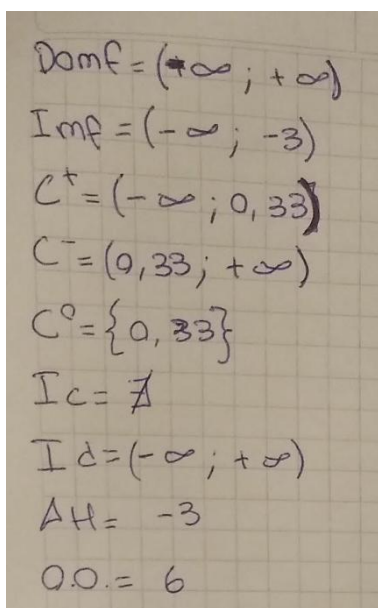 Domf=(-∞ ; +∞)
Imf=(-∞ ; -3)
C⁺=(-∞ ; 0,33)
C⁻=(0,33 ; +∞)
C⁰={0,33}
Ic= ∄
Id=(-∞ ; +∞)
AH= -3
O.O.= 6